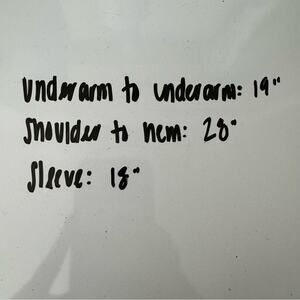 underarm to underarm: 19"
shoulder to hem: 28"
sleeve: 18"